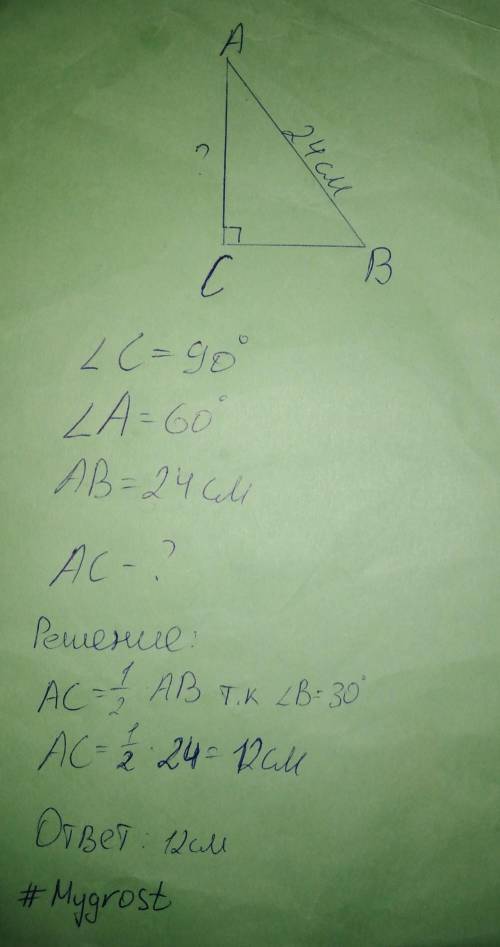 A
?
24 см
C
B
∠C = 90°
∠A = 60°
AB = 24 см
AC - ?
Решение:
AC = 1/2 AB т.к ∠B = 30°
AC = 1/2 · 24 = 12 см
Ответ: 12 см
#Mygrost